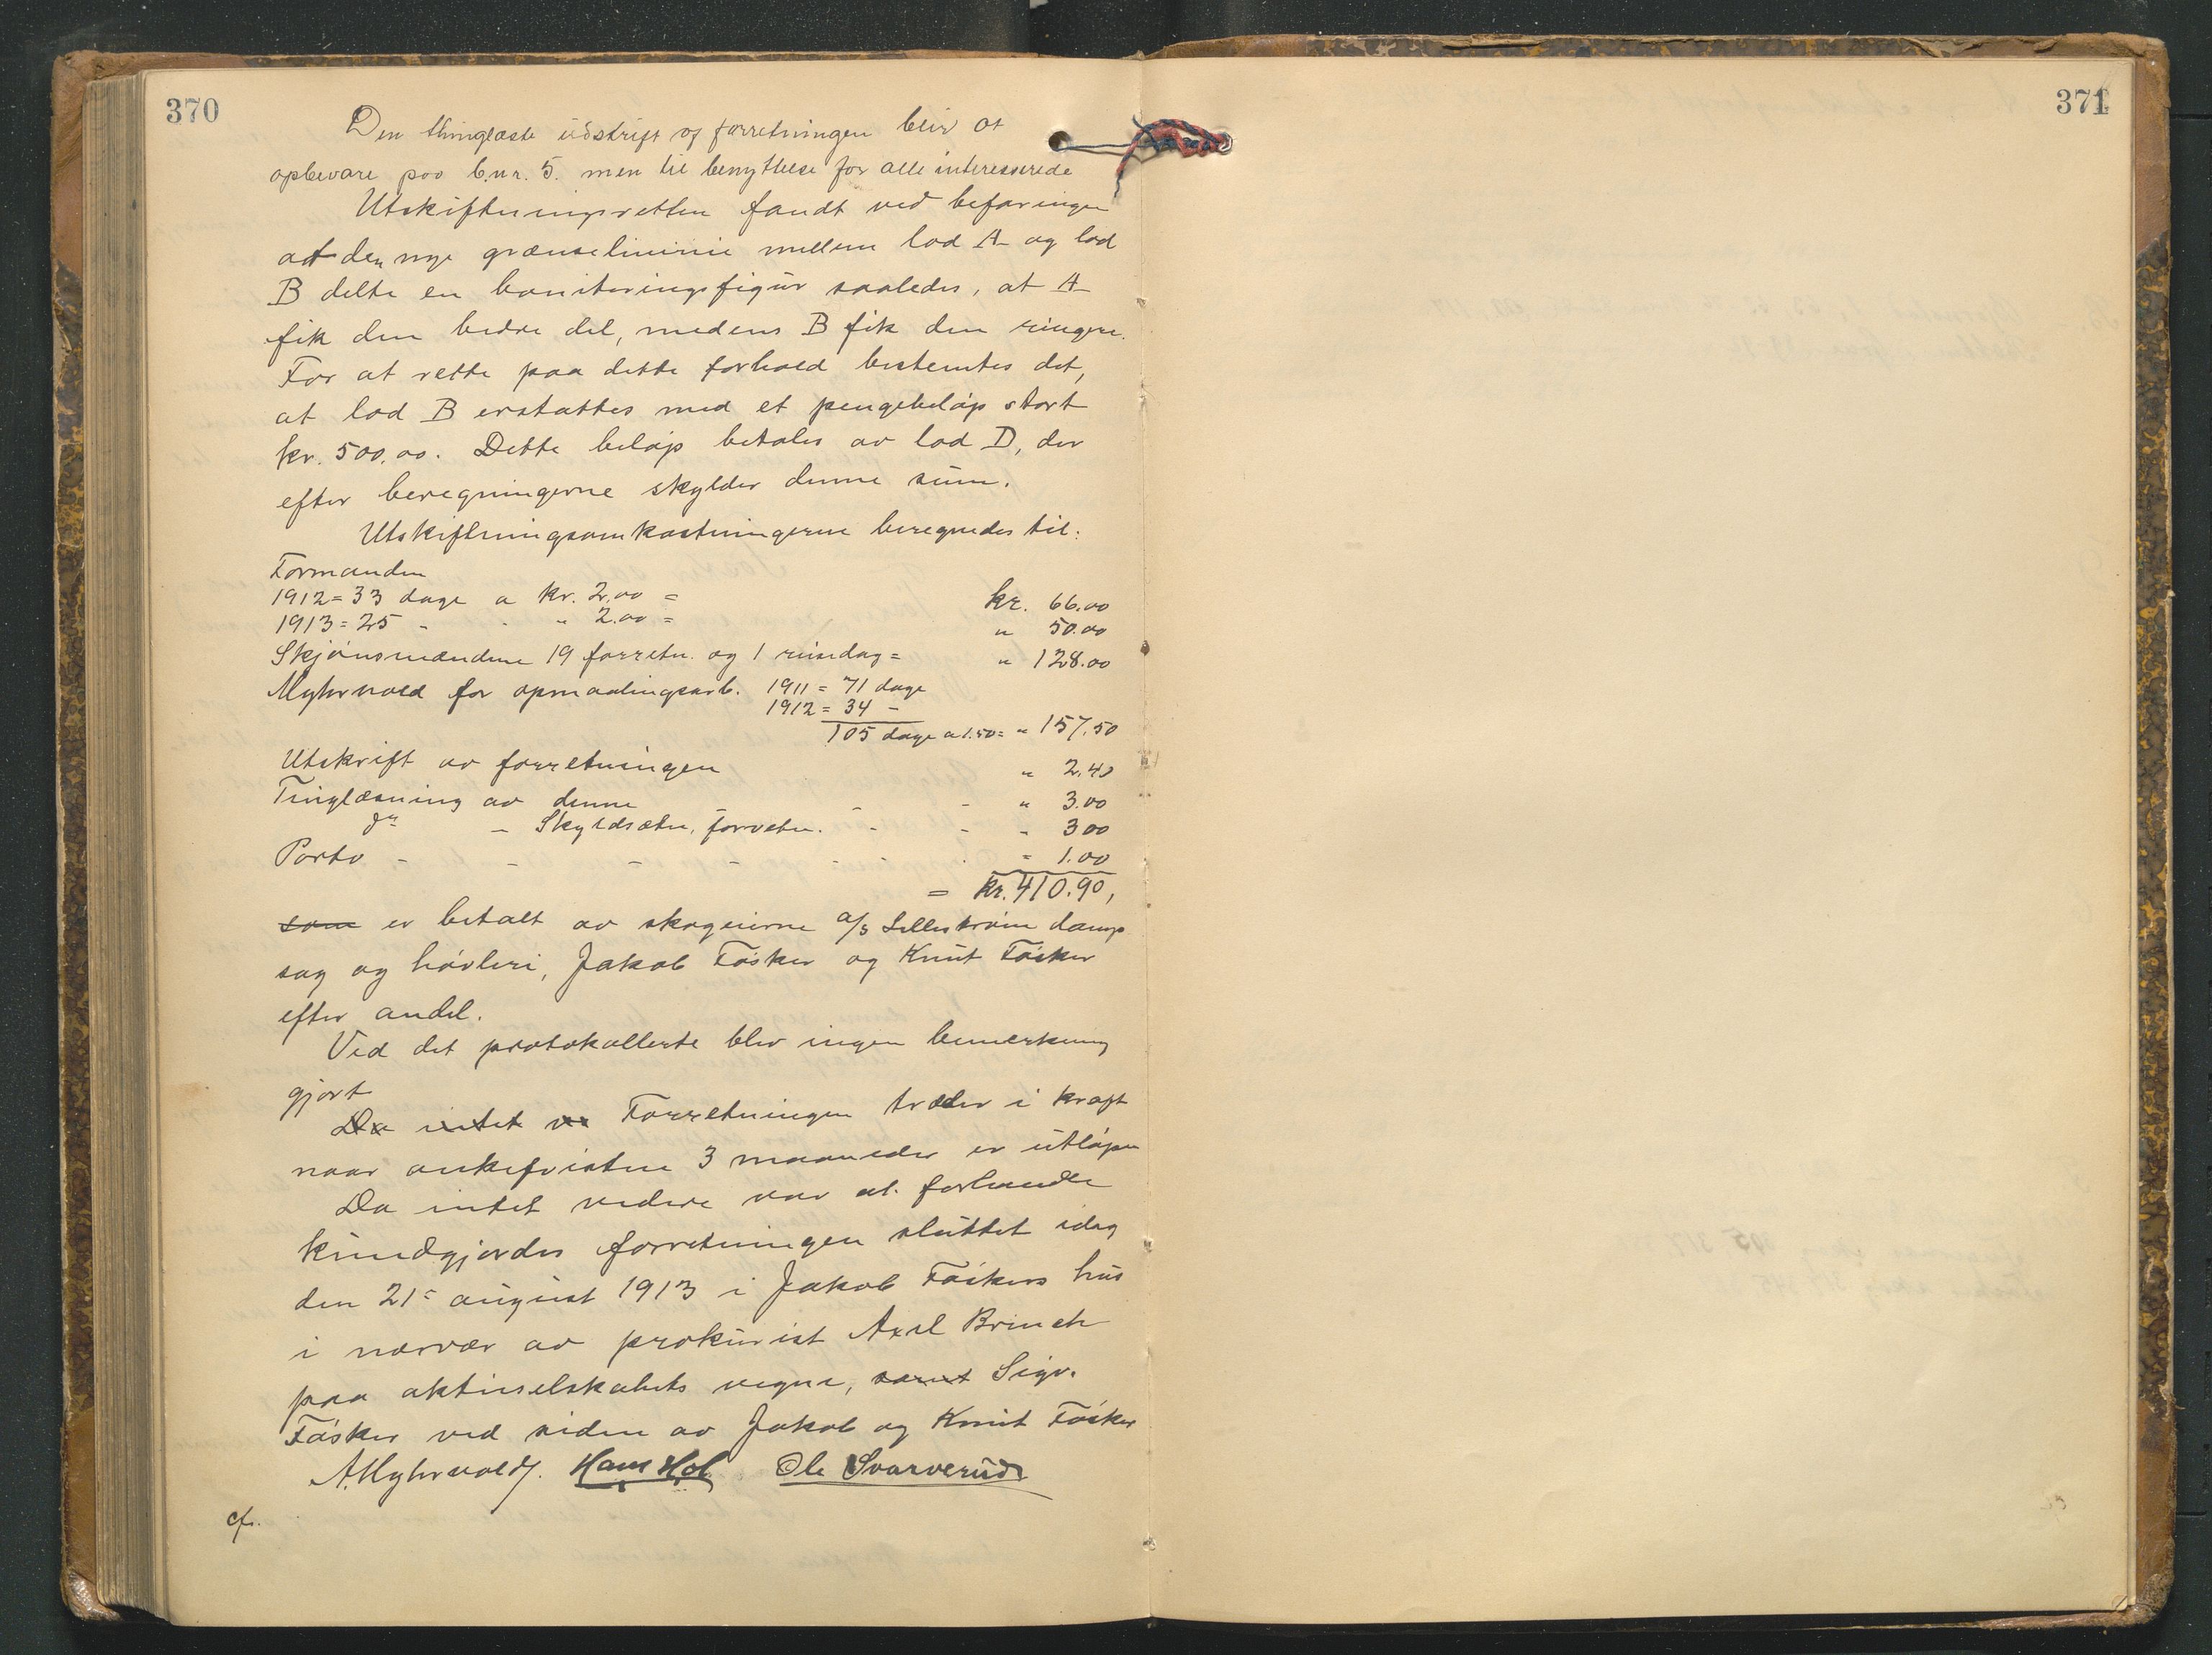 370
Den thinglæste udskrift af forretningen blir at
opbevare paa b.nr. 5. men til benyttelse for alle interesserede
Utskiftningsretten fandt ved befaringen
at den nye grænselinie mellem lod A og lod
B delte en boniteringsfigur saaledes, at A
fik den bedre del, medens B fik den ringere.
For at rette paa dette forhold bestemtes det,
at lod B erstattes med et pengebeløp stort
kr. 500,00. Dette beløp betales av lod D, der
efter beregningerne skylder denne sum.
Utskiftningsomkostningerne beregnedes til:
Formanden
1912 = 33 dage a kr. 2.00 = kr. 66.00
1913 = 25 - - " 2.00 = " 50.00
Skjønsmændene 19 forretn. og 1 reisedag = " 128.00
Myhrvold for opmaalingsarb. 1911 = 71 dage
1912 = 34 -
105 dage a 1.50 = " 157.50
Utskrift av forretningen " 2.40
Tinglæsning av denne - - " 3.00
do - Skyldsætn. forretn. - - - 3 00
Porto - - - - - - - " 1.00
= kr. 410.90,
som er betalt av skogeierne a/s Lillestrøm damp
sag og høvleri, Jakob Fösker og Knut Fösker
efter andel.
Ved det protokollerte blev ingen bemerkning
gjort
Da intet va Forretningen træder i kraft
naar ankefristen 3 maaneder er utløpen
Da intet videre var at forhandle
kundgjordes forretningen sluttet idag
den 21de august 1913 i Jakob Föskers hus
i nærvær av prokurist Axel Brinch
paa aktieselskabets vegne, samt Sigv.
Fösker ved siden av Jakob og Knut Fösker
A. Myhrvold. Hans Hol Ole Svarverud
cfr.
371